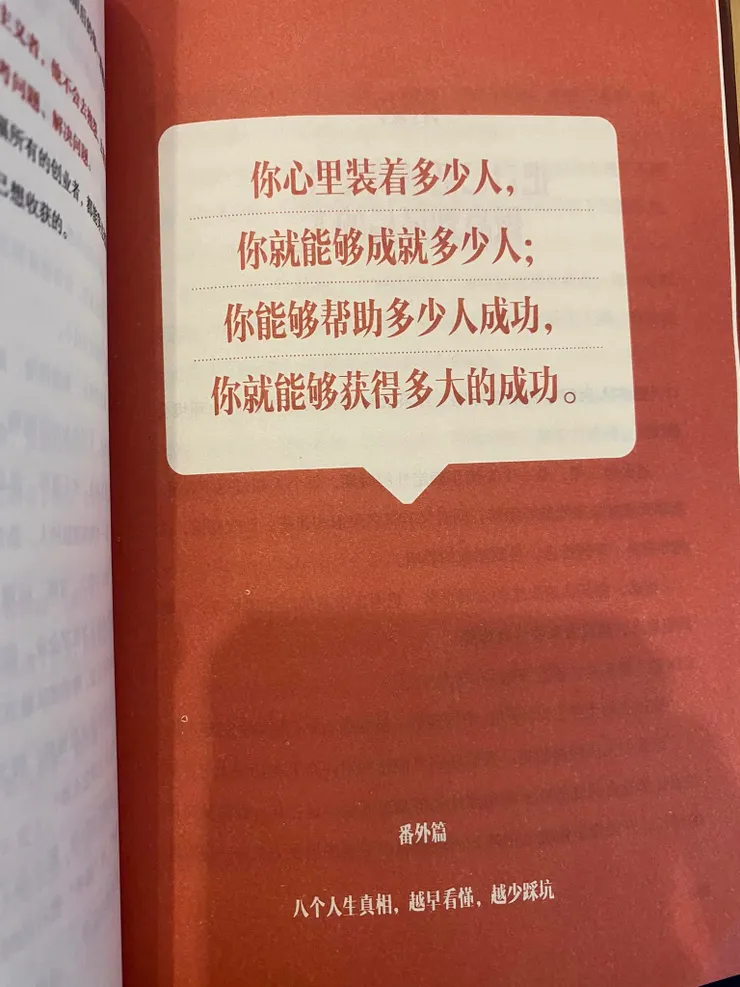 主义者，
考问题、解决问题。
所有的创业者，
己想收获的。
你心里装着多少人，
你就能够成就多少人；
你能够帮助多少人成功，
你就能够获得多大的成功。
番外篇
八个人生真相，越早看懂，越少踩坑